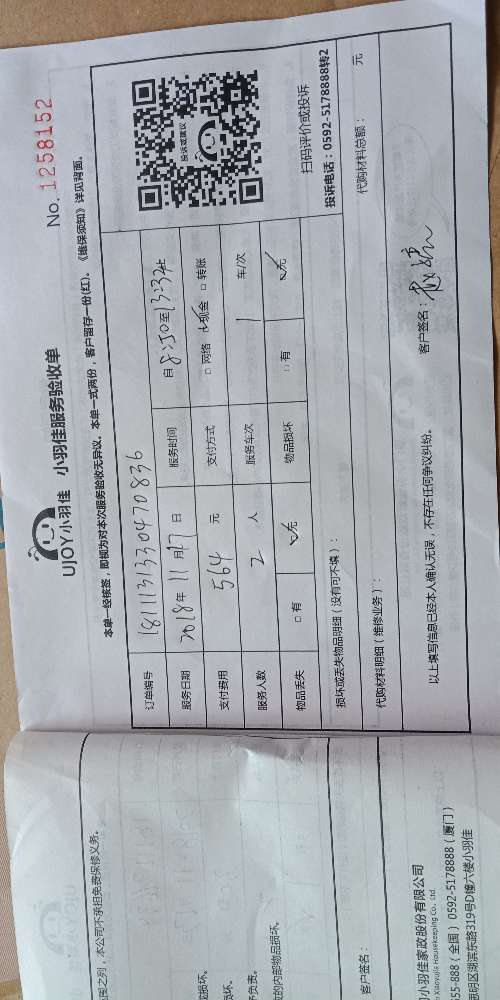 UJOY小羽佳 小羽佳服务验收单
No. 1258152
本单一经核签，即视为对本次服务验收无异议。本单一式两份，客户留存一份(红)。《维保须知》详见背面。
订单编号 181113130470836
服务日期 2018年11月17日 服务时间 自8:50至13:33止
支付费用 564 元 支付方式 □ 网络 ☑ 现金 □ 转账
服务人数 2 人 服务车次 1 车/次
物品丢失 □ 有 ☑ 无 物品损坏 □ 有 ☑ 无
投诉或建议
扫码评价或投诉
投诉电话：0592-5178888转2
损坏或丢失物品明细（没有可不填）：
代购材料明细（维修业务）： 代购材料总额： 元
以上填写信息已经本人确认无误，不存在任何争议纠纷。
客户签名：
之列，本公司不承担免费保修义务。
损坏。
坏。
负责。
的内部物品损坏。
客户签名：
小羽佳家政股份有限公司
Xiaoyujia Housekeeping Co., Ltd.
55-888（全国）0592-5178888（厦门）
思明区湖滨东路319号D幢六楼小羽佳